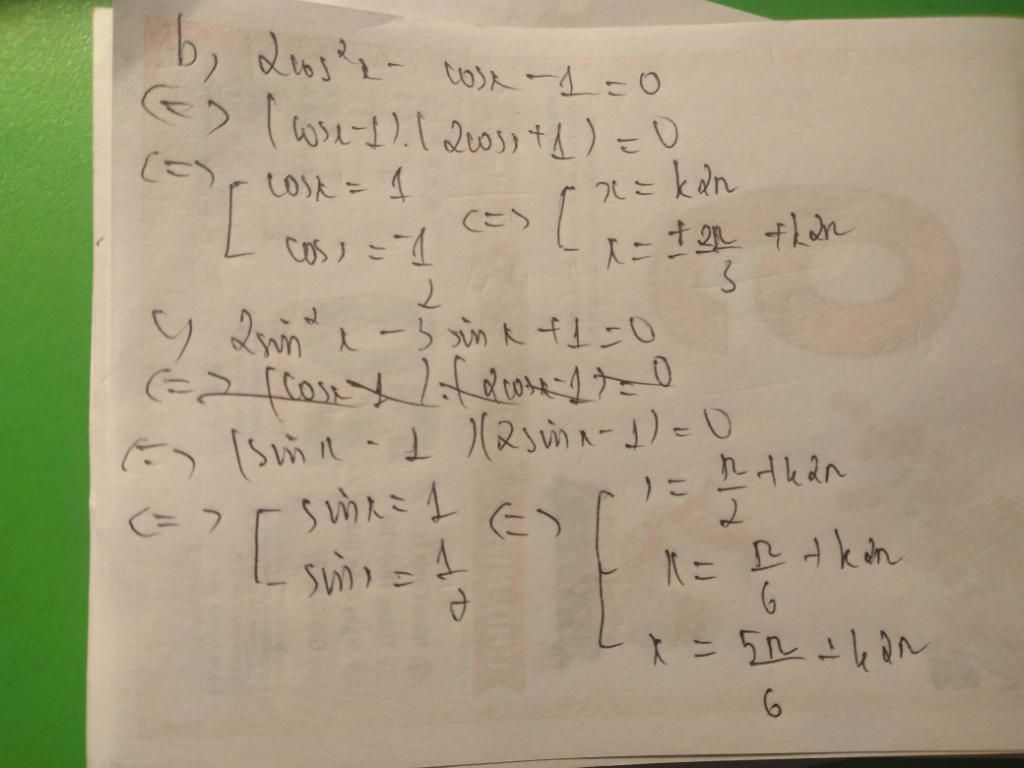 b, 2cos²x - cosx - 1 = 0
(=) (cosx-1).(2cosx+1) = 0
(=) [ cosx = 1 (=) [ x = k2π
cosx = -1/2 x = ±2π/3 + k2π
c) 2sin²x - 3sinx + 1 = 0
(=) (cosx-1).(2cosx-1) = 0
(=) (sinx - 1)(2sinx-1) = 0
(=) [ sinx = 1 (=) [ x = π/2 + k2π
sinx = 1/2 x = π/6 + k2π
x = 5π/6 + k2π